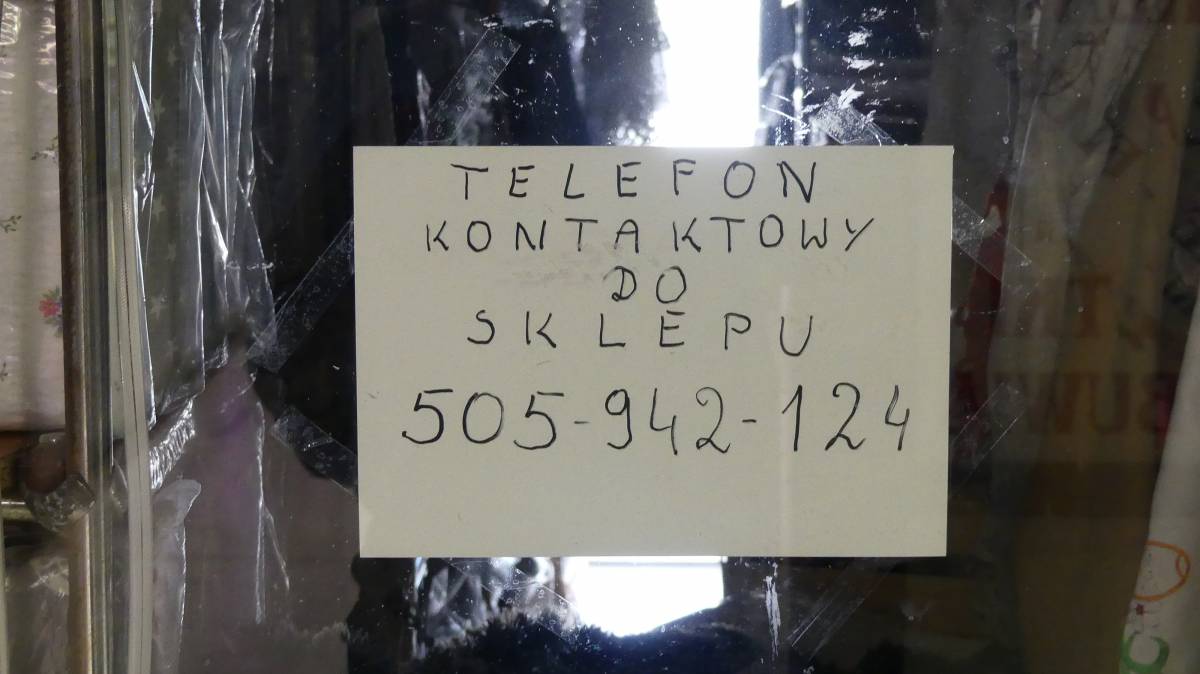 TELEFON
KONTAKTOWY
DO
SKLEPU
505-942-124